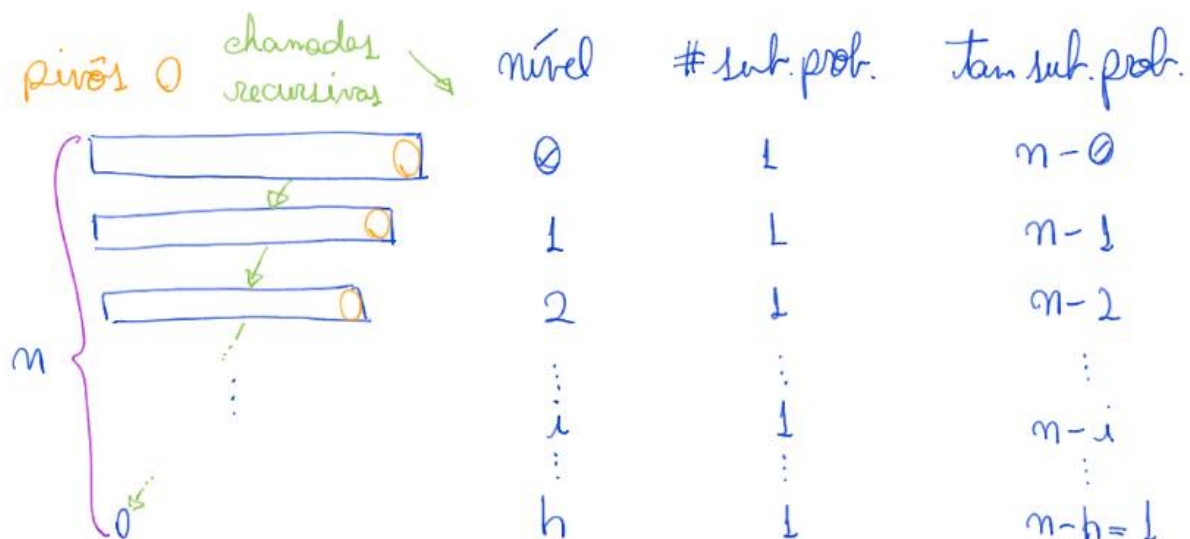 pivôs O chamadas recursivas nível # sub. prob. tam sub. prob.
0 1 n-0
1 1 n-1
2 1 n-2
n ⋮ ⋮ ⋮ ⋮
i 1 n-i
⋮ ⋮ ⋮
0 h 1 n-h=1